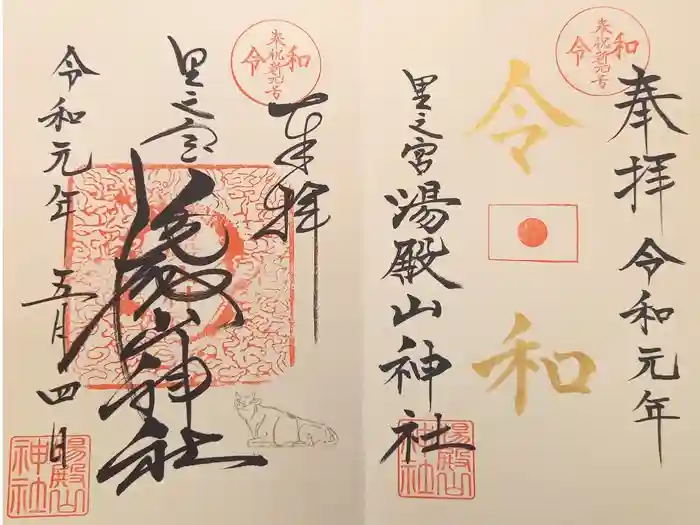 奉拝 令和元年
奉祝新元号
令和
令和
里之宮 湯殿山神社
湯殿山
神社
奉祝新元号
令和
奉拝
里之宮
湯殿山神社
令和元年 五月四日
湯殿山
神社